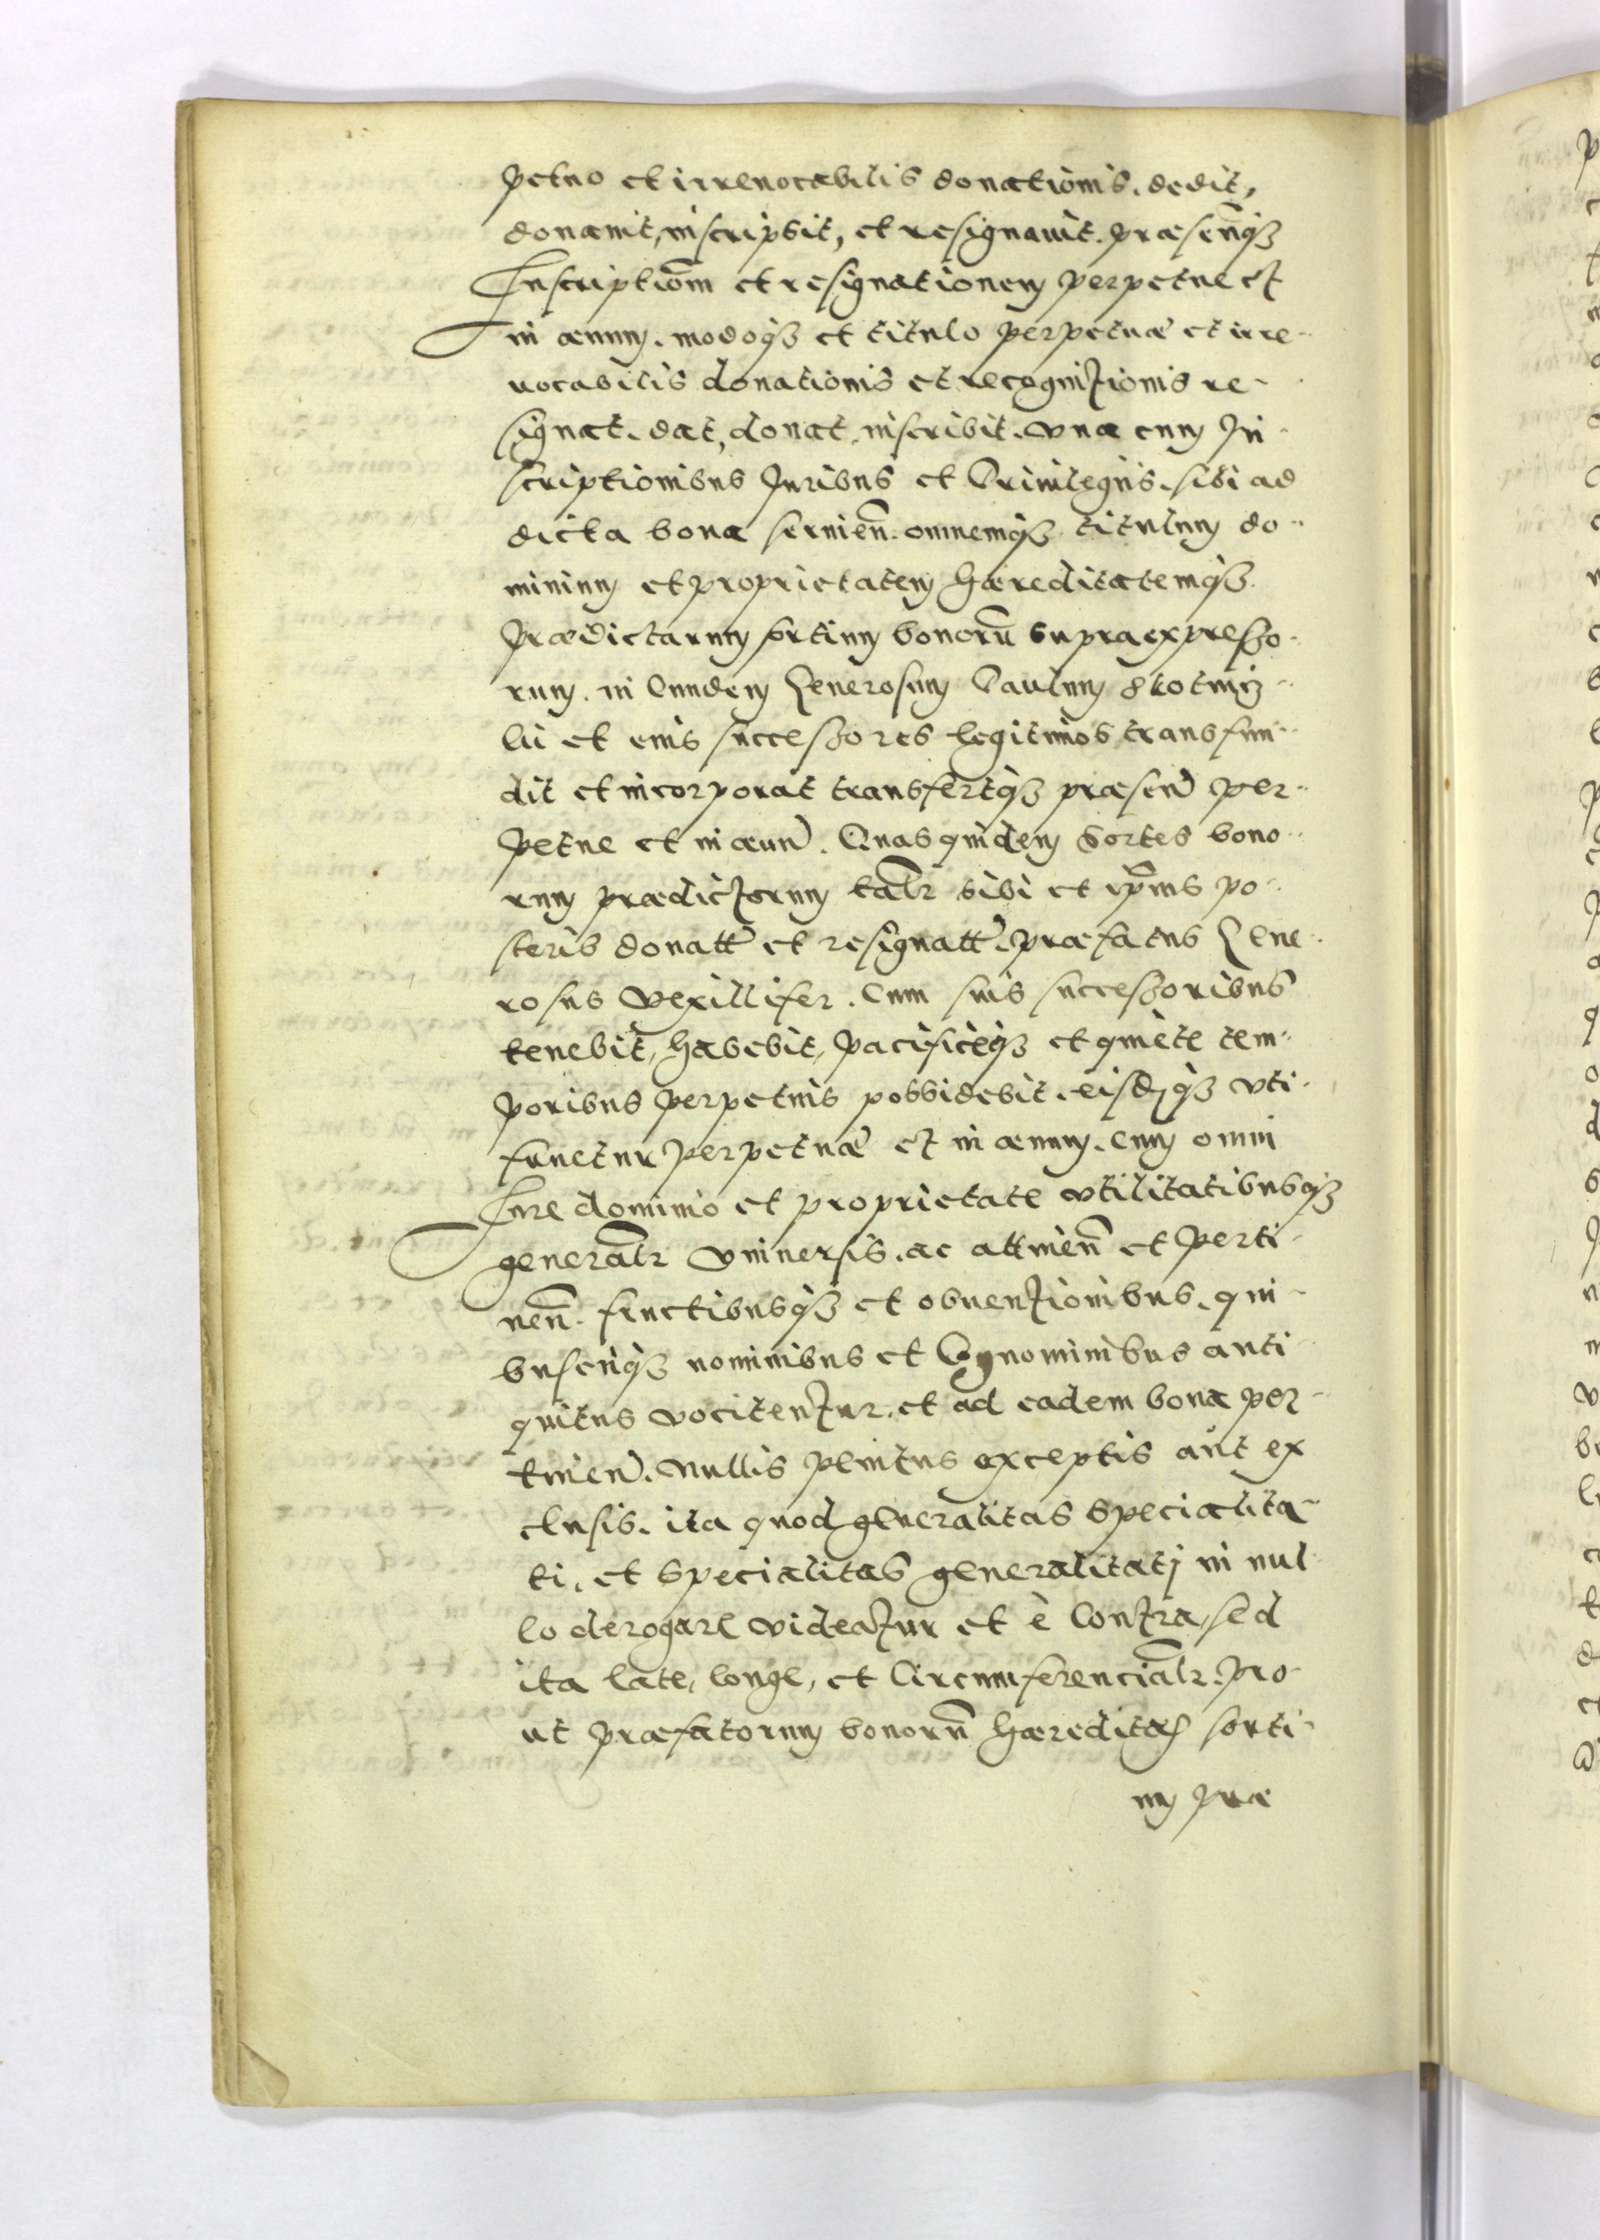 petuo et irreuocabilis donationis. dedit,
donauit, inscripsit, et resignauit. præsentiq3
Inscriptiom et resignationem perpetue et
in æuum. modoq3 et titulo perpetuæ et irre-
uocabilis donationis et recognitionis re-
signat. dat, donat, inscribit. Vna cum In
scriptionibus Iuribus et Priuilegijs. sibi ad
dicta bona seruien̄. omnemq3 titulum do-
minium et proprietatem hæreditatemq3
Prædictarum sortium bonorū supraexpresso-
rum. in Eundem Generosum Paulum Skotnicz-
ki et eius successores legitimos transfun-
dit et incorporat transfertq3 præsen̄ per-
petue et in æuum. Quas quidem Sortes bono-
rum prædictorum talr sibi et ipsius po-
steris donatt et resignatt. præfatus Gene-
rosus Vexillifer. Cum suis successoribus
tenebit, habebit, pacificeq3 et quiete tem-
poribus perpetuis possidebit. eisdq3 vti-
fruetur perpetuæ et in æuum. cum omni
Iure dominio et proprietate vtilitatibusq3
generalr Vniuersis. ac attinen̄ et Perti-
nen̄. fructibusq3 et obuentionibus. qui-
buscunq3 nominibus et Cognominibus anti-
quitus vocitentur. et ad eadem bona per-
tinen̄. Nullis penitus exceptis aut ex
clusis. ita quod generalitas Specialita-
ti. et Specialitas generalitatj in nul
lo derogare videatur et è Contra, sed
ita late, longe, et Circumferencialr. pro-
ut præfatorum bonorū hæreditar sorti-
um præ